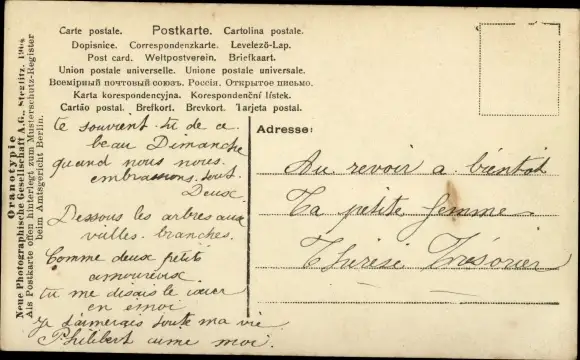 Carte postale. Postkarte. Cartolina postale.
Dopisnice. Correspondenzkarte. Levelező-Lap.
Post card. Weltpostverein. Briefkaart.
Union postale universelle. Unione postale universale.
Всемірный почтовый союзъ. Россія. Открытое письмо.
Karta korespondencyjna. Korespondenční lístek.
Cartão postal. Brefkort. Brevkort. Tarjeta postal.
Oranotypie
Neue Photographische Gesellschaft A.G., Steglitz. 1904
Als Postkarte offen hinterlegt zum Musterschutz-Register
beim Amtsgericht Berlin.
te souvient-tu de ce
beau Dimanche
quand nous nous
embrassions tout
Deux
Dessous les arbres aux
vielles branches.
Comme deux petit
amoureux
tu me disais le cœur
en émoi
Je t'aimerais toute ma vie
Philibert aime moi.
Adresse:
Au revoir a bientot
Ta petite femme
Thérèse Trésorier